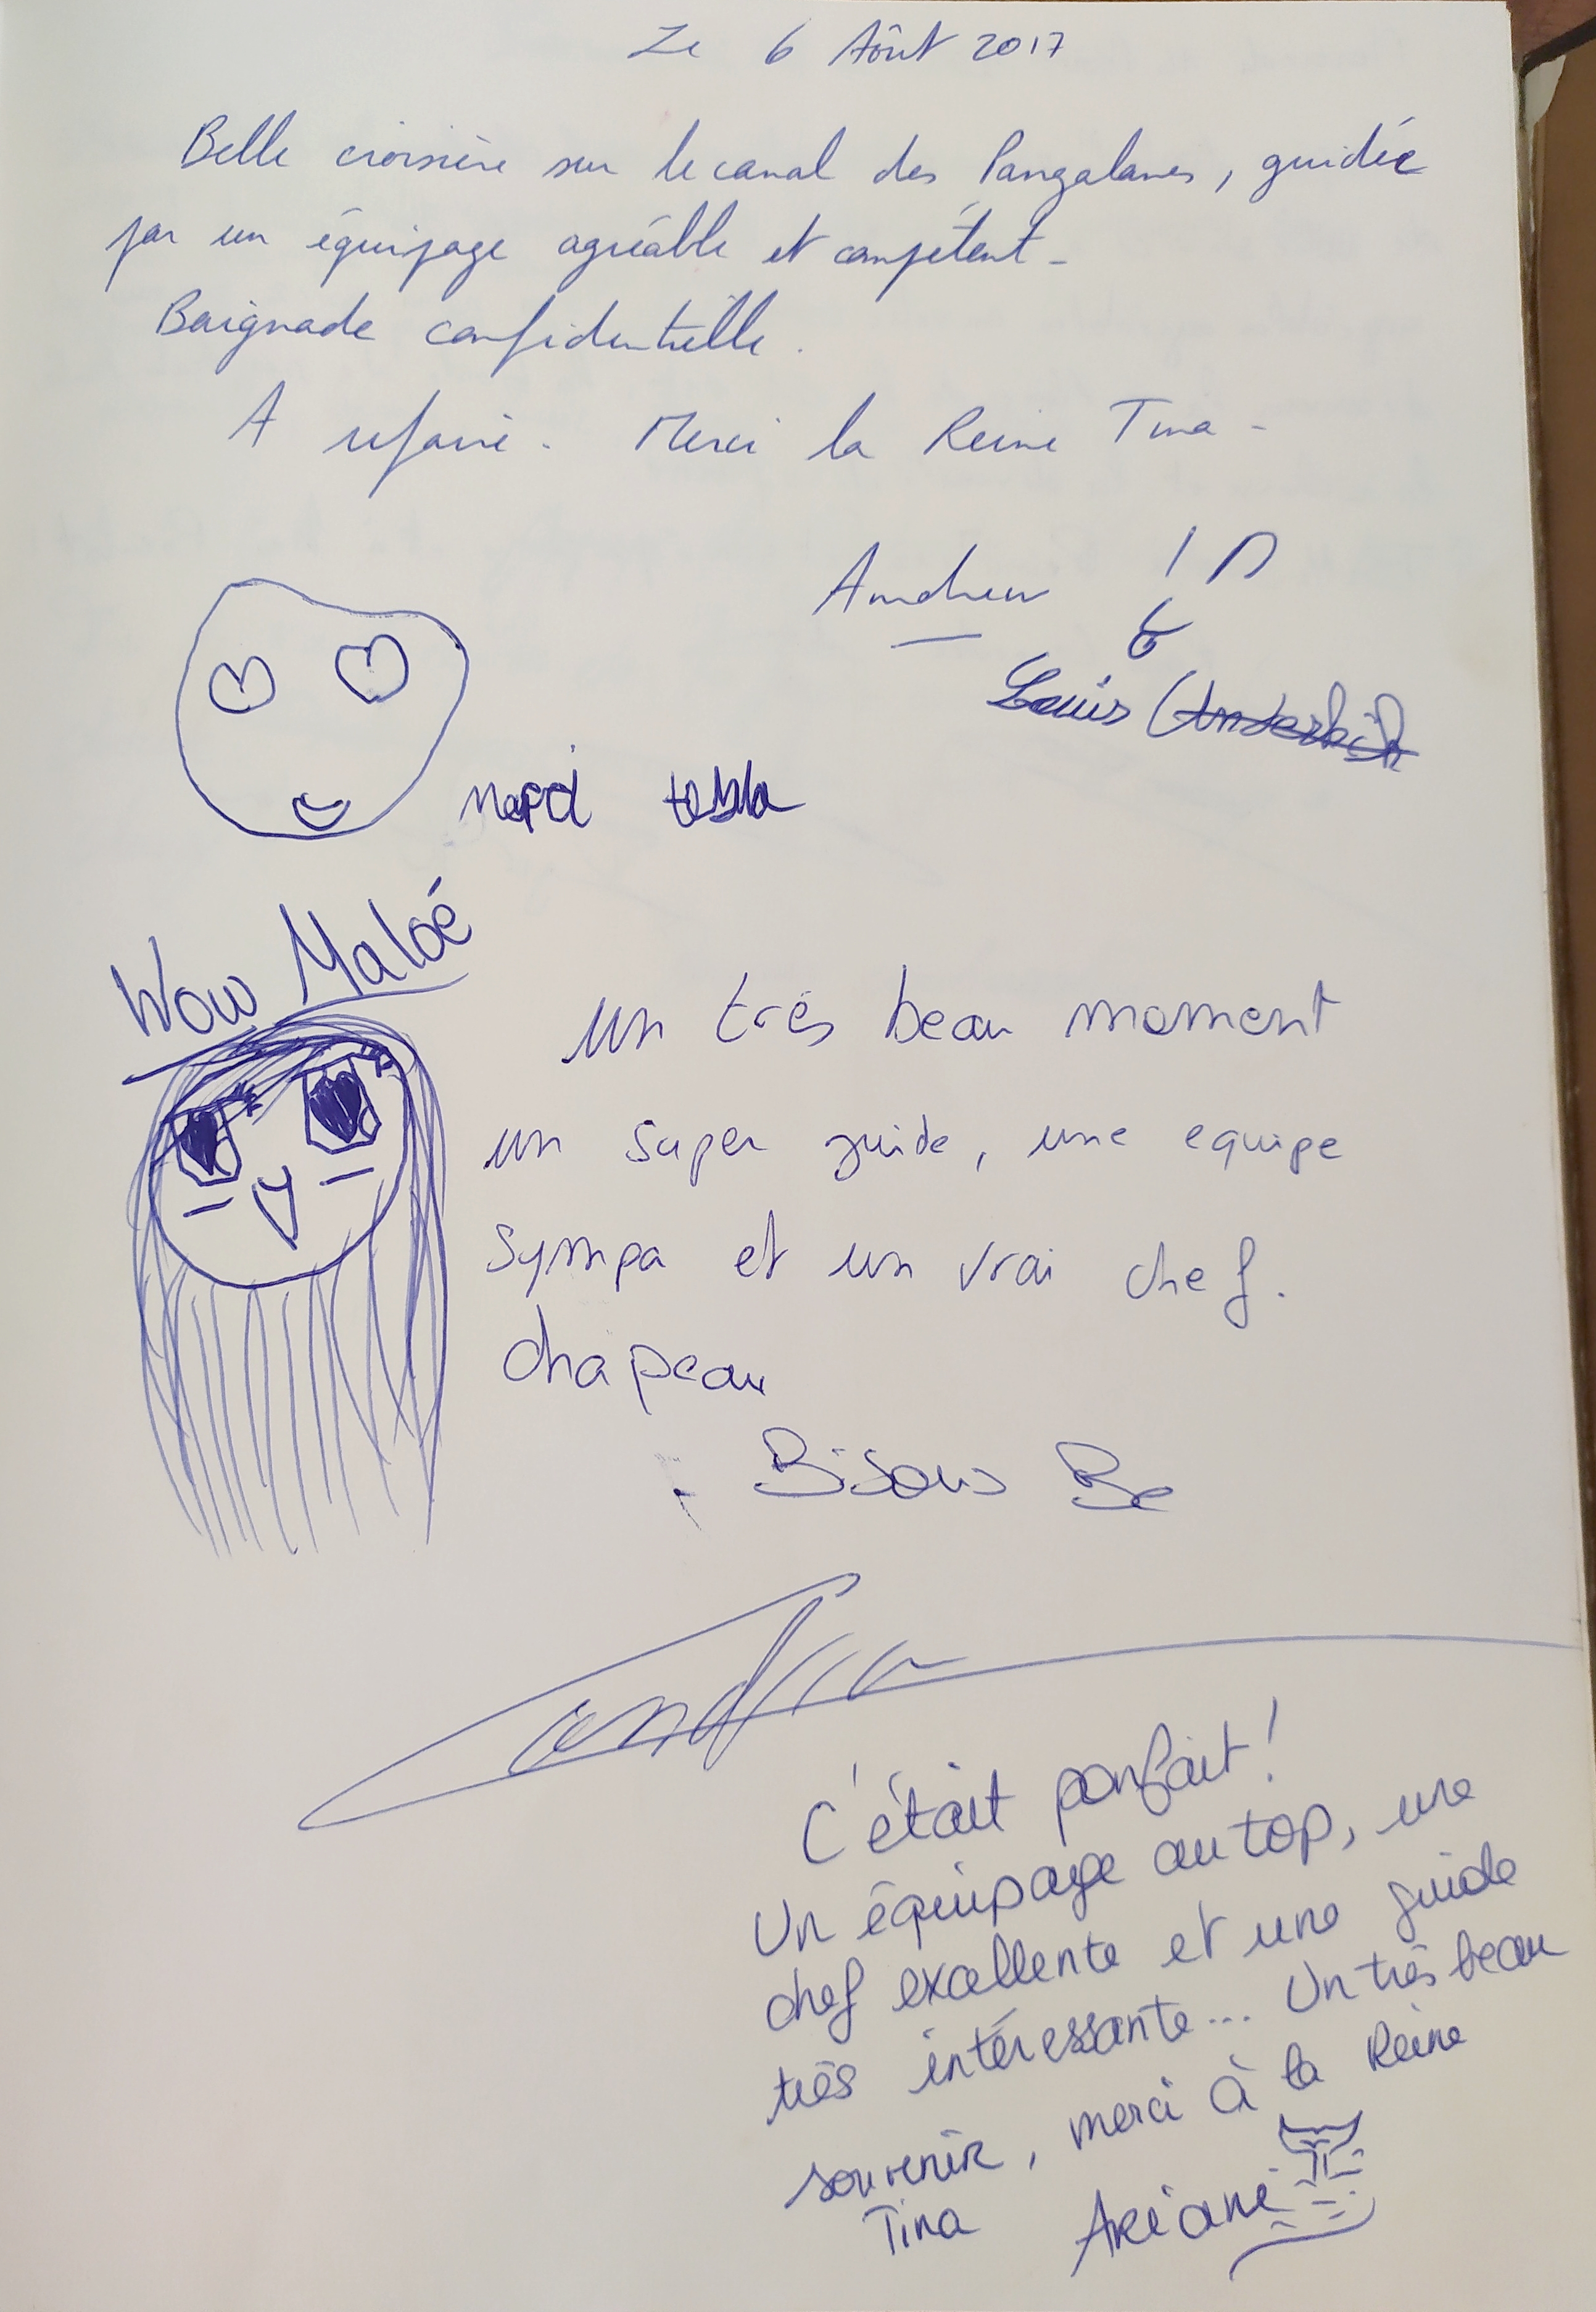 Le 6 Aôut 2017
Belle croisière sur le canal des Pangalanes, guidée
par un équipage agréable et compétent -
Baignade confidentielle.
A refaire - Merci la Reine Tina -
Andrew
Louis
Wow Maloé
un très beau moment
un super guide, une equipe
sympa et un vrai chef.
chapeau
Bisous Be
C'était parfait !
Un équipage au top, une
chef excellente et une guide
très intéressante... Un très beau
souvenir, merci à la Reine
Tina Ariane